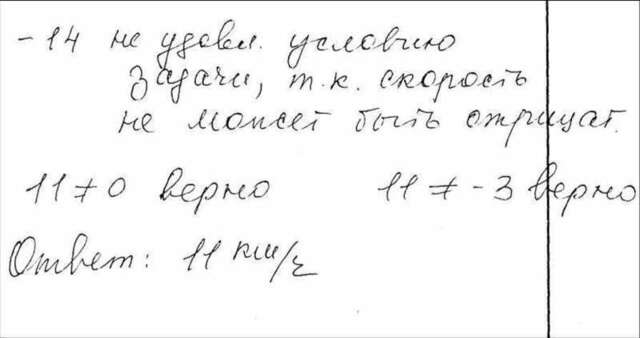 -14 не удовл. условию
задачи, т.к. скорость
не может быть отрицат.
11 ≠ 0 верно 11 ≠ -3 верно
Ответ: 11 км/ч